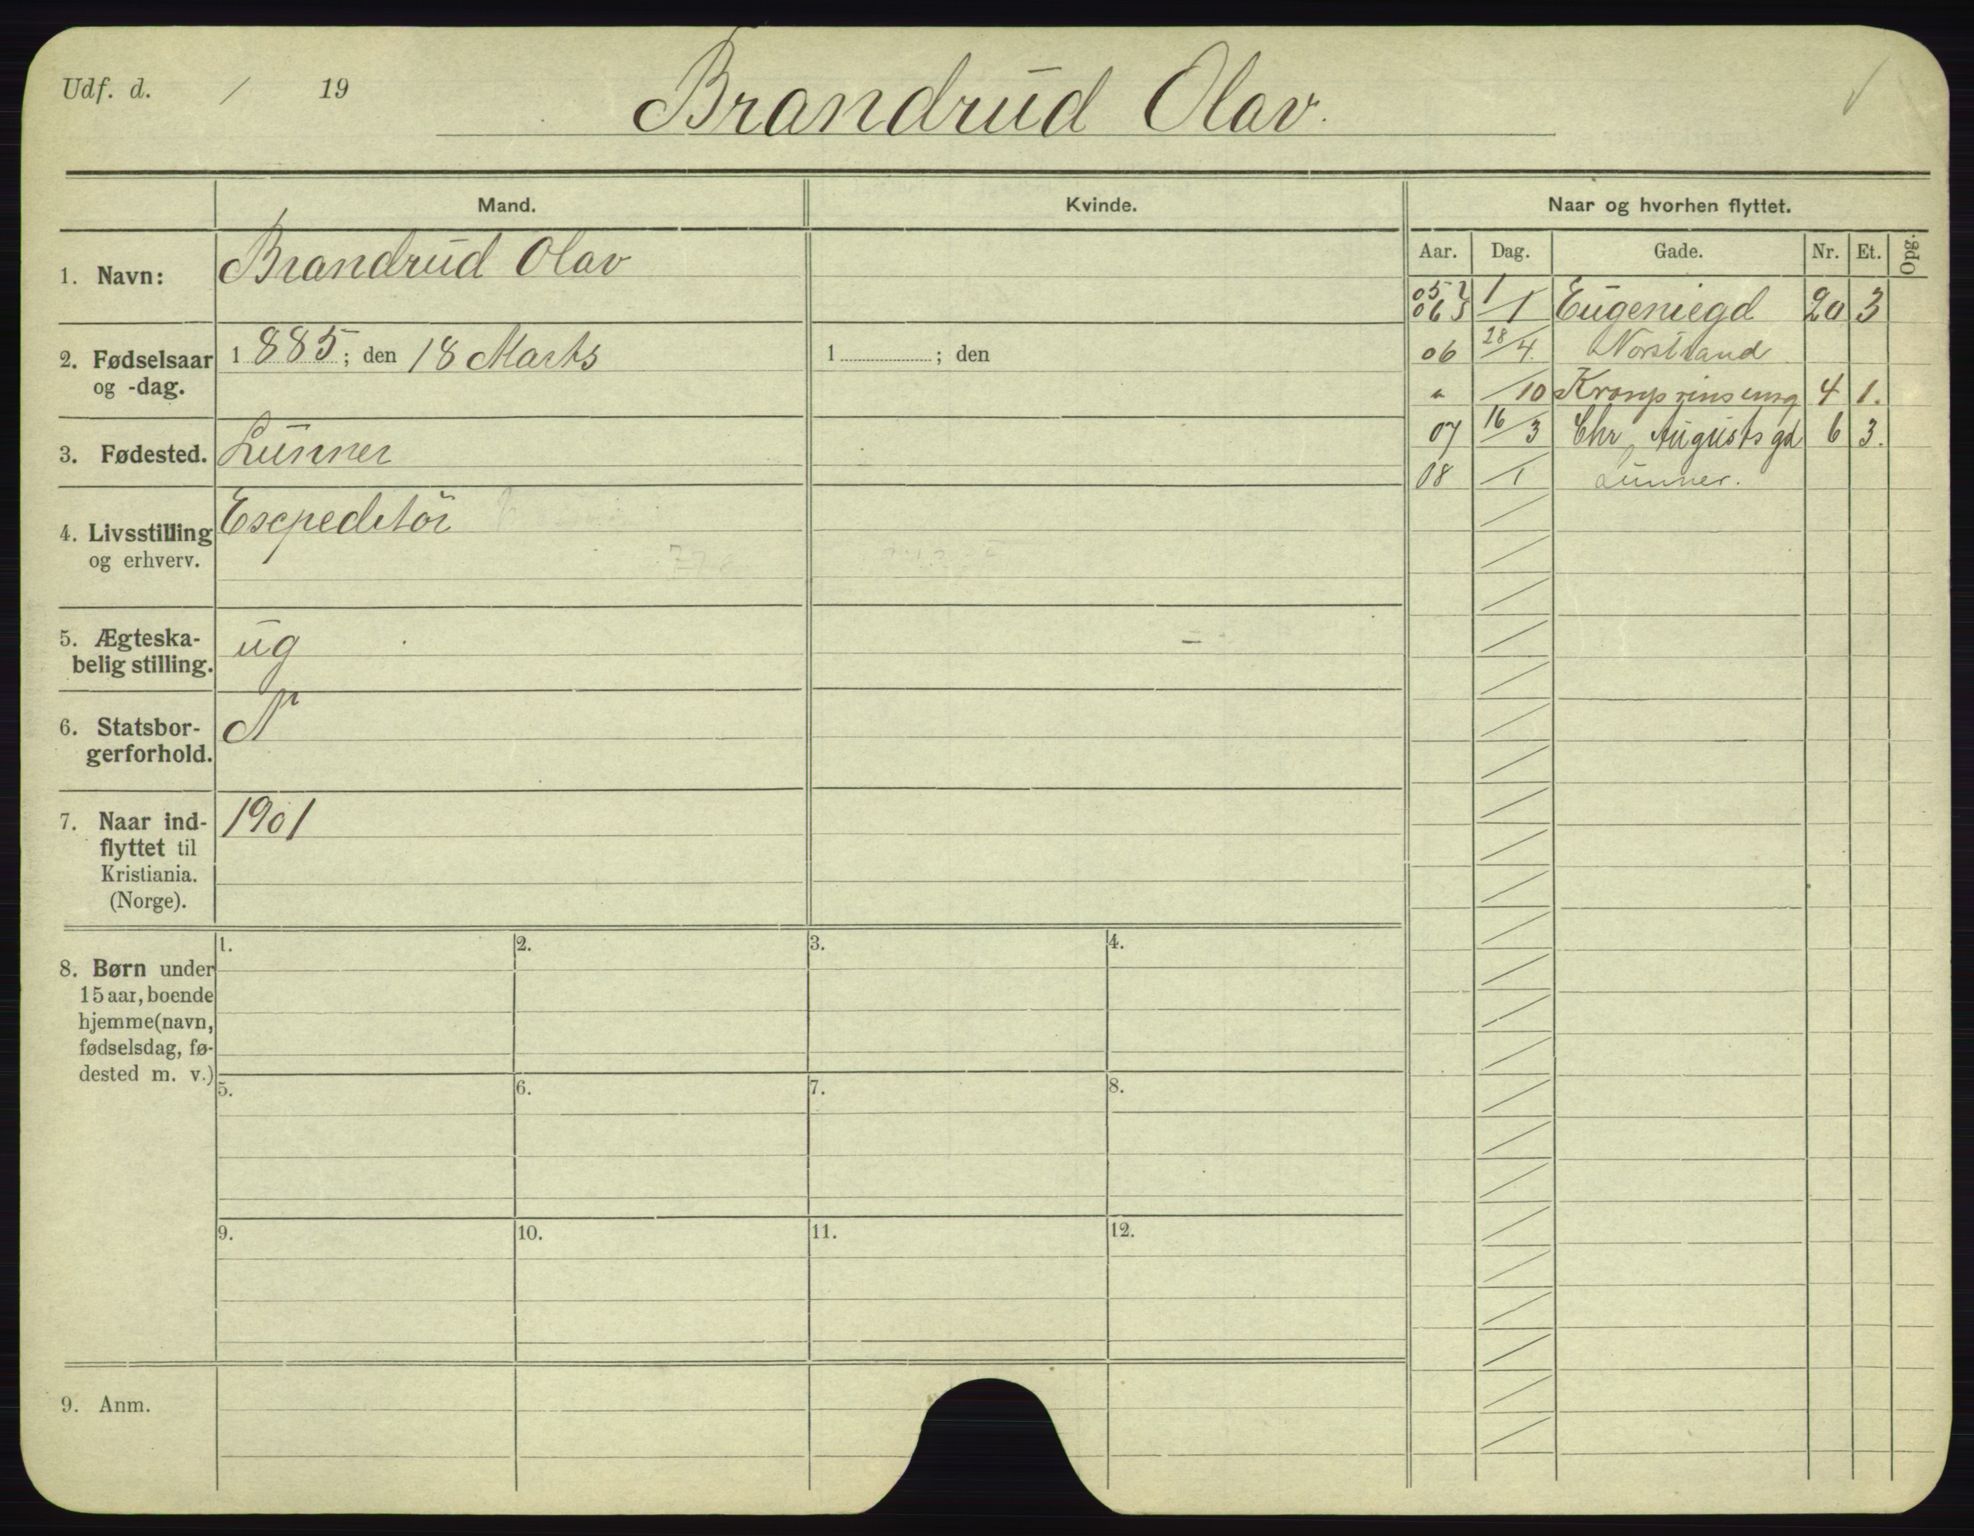 Udf. d. / 19
Brandrud Olav.
Mand. Kvinde. Naar og hvorhen flyttet.
Aar. Dag. Gade. Nr. Et. Opg.
1. Navn: Brandrud Olav
2. Fødselsaar og -dag. 1885; den 18 Marts 1 ; den
3. Fødested. Lunner
4. Livsstilling og erhverv. Excpeditør
5. Ægteska-
belig stilling. ug -
6. Statsbor-
gerforhold. N
7. Naar ind-
flyttet til
Kristiania.
(Norge). 1901
05 1
06 /1 Eugeniegd 20 3
06 28/4 Norstrand
" /10 Kronprinsensg 4 1.
07 16/3 Chr. Augustsgd 6 3.
08 /1 Lunner.
8. Børn under
15 aar, boende
hjemme (navn,
fødselsdag, fø-
dested m. v.)
1. 2. 3. 4.
5. 6. 7. 8.
9. 10. 11. 12.
9. Anm.